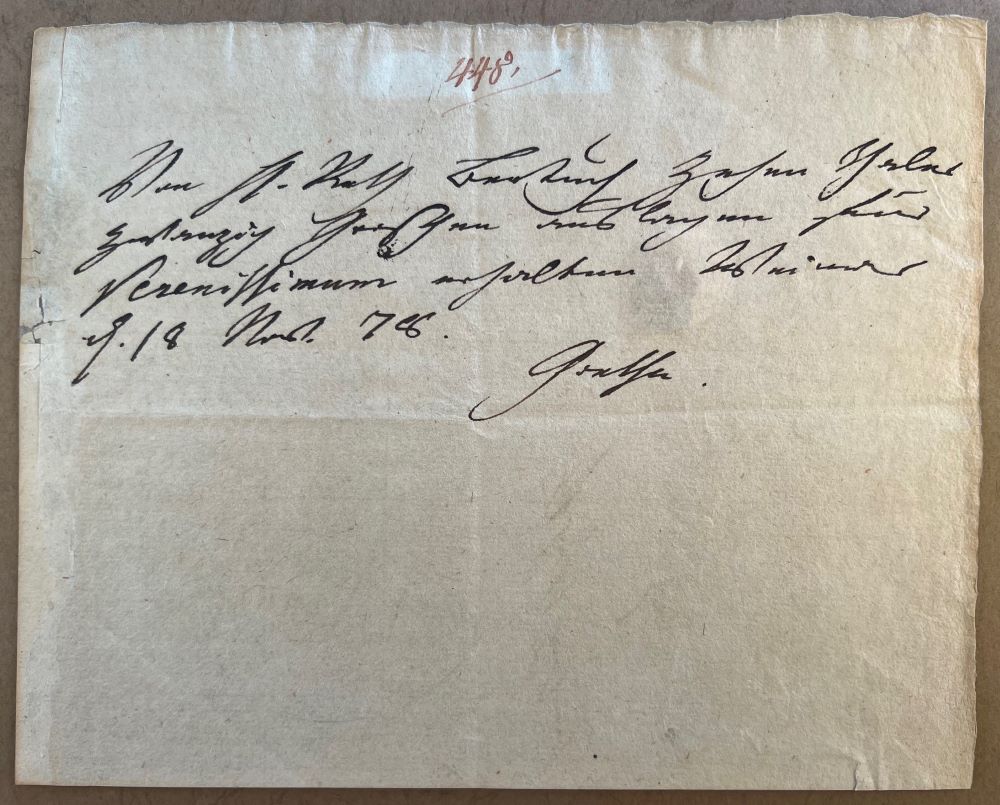 448,
Von H. Rath Bertuch zehen Thaler
zwanzig Groschen auslagen für
Serenissimum erhalten Weimar
d. 18 Nov. 78.
Goethe.